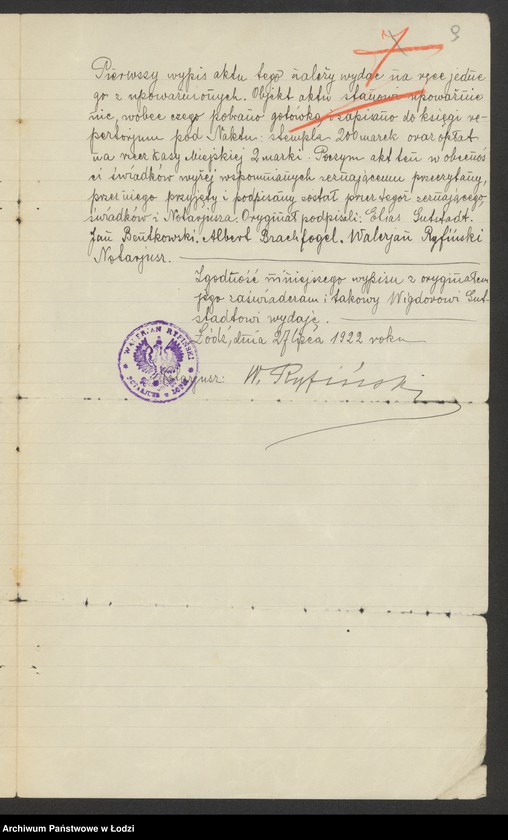 9
Pierwszy wypis aktu tego należy wydać na ręce jedne
go z upoważnionych. Objekt aktu stanowi upoważnie
nie, wobec czego pobrano gotówką i zapisano do księgi re-
pertorjum pod №aktu: stempla 200 marek oraz opłat
na rzecz Kasy Miejskiej 2 marki. Poczym akt ten w obecnoś
ci świadków wyżej wspomnianych zeznającemu przeczytany,
przez niego przyjęty i podpisany został przez tegoż zeznającego,
świadków i Notarjusza. Oryginał podpisali: Elias Gutstadt.
Jan Bentkowski. Albert Brachfogel. Walerjan Ryfiński
Notarjusz.
Zgodność niniejszego wypisu z oryginałem
jego zaświadczam i takowy Wigdorowi Gut-
stadtowi wydaję.
Łódź, dnia 27 lipca 1922 roku
Notarjusz: W. Ryfiński
WALERJAN RYFIŃSKI
NOTARJUSZ w ŁODZI
Archiwum Państwowe w Łodzi